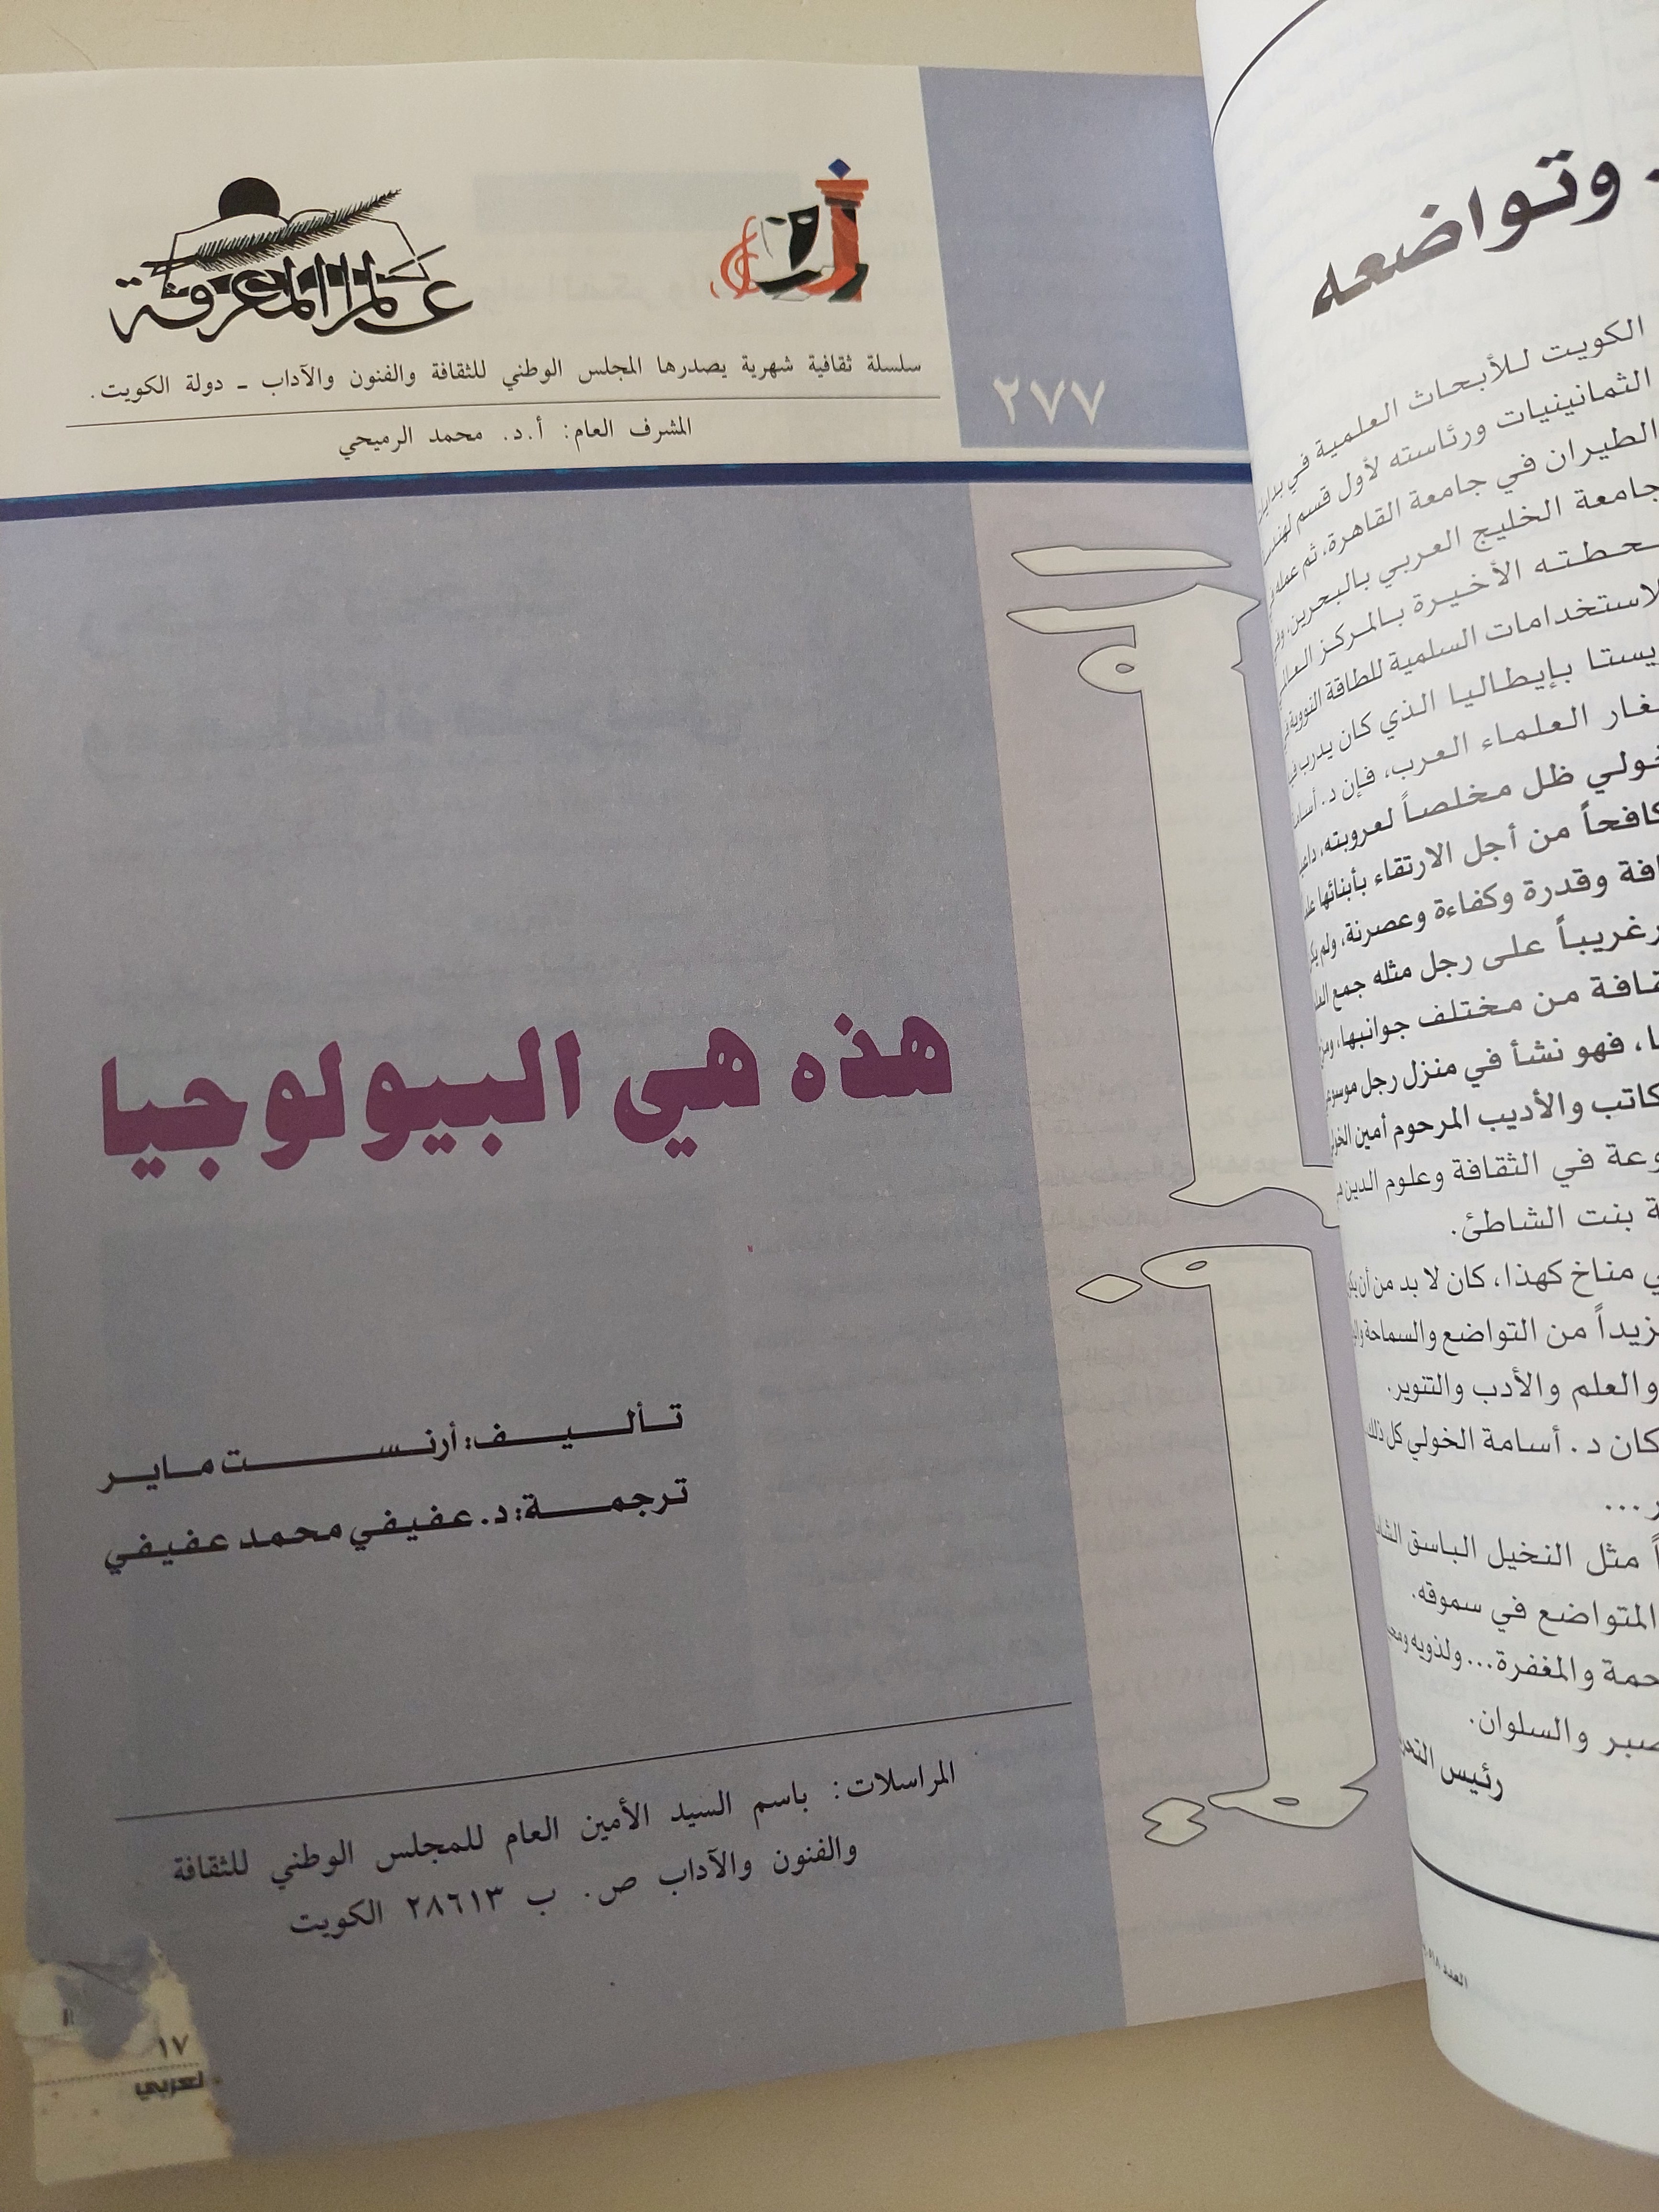 عالم المعرفة
سلسلة ثقافية شهرية يصدرها المجلس الوطني للثقافة والفنون والآداب ـ دولة الكويت.
المشرف العام: أ.د. محمد الرميحي
٢٧٧
هذه هي البيولوجيا
تأليف: أرنست ماير
ترجمة: د. عفيفي محمد عفيفي
المراسلات: باسم السيد الأمين العام للمجلس الوطني للثقافة
والفنون والآداب ص. ب ٢٨٦١٣ الكويت
١٧
وتواضعه
الكويت للأبحاث العلمية في
الثمانينيات ورئاسته لأول قسم
الطيران في جامعة القاهرة، ثم عمله
جامعة الخليج العربي بالبحرين،
الأخيرة بالمركز
السلمية للطاقة النووية
بإيطاليا الذي كان يدرب
العلماء العرب، فإن د. أسامة
ظل مخلصاً لعروبته،
من أجل الارتقاء بأبنائها
وقدرة وكفاءة وعصرنة، ولم
على رجل مثله جمع
من مختلف جوانبها،
فهو نشأ في منزل رجل
والأديب المرحوم أمين
في الثقافة وعلوم الدين
بنت الشاطئ.
مناخ كهذا، كان لا بد من أن
من التواضع والسماحة
والعلم والأدب والتنوير.
كان د. أسامة الخولي كل ذلك
مثل النخيل الباسق
المتواضع في سموقه.
والمغفرة... ولذويه
والسلوان.
رئيس
العدد